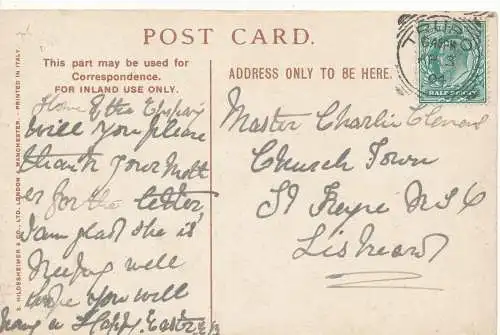 POST CARD.
This part may be used for
Correspondence.
FOR INLAND USE ONLY.
ADDRESS ONLY TO BE HERE.
TRURO
AP 3
04
HALFPENNY
S. HILDESHEIMER & CO., LTD. LONDON & MANCHESTER. PRINTED IN ITALY.
Home
will you please
thank your Moth
er for the letter
I am glad she is
keeping well
hope you will
have a Happy Easter
Master Charlie
Church Town
St Keyne R.S.O
Liskeard